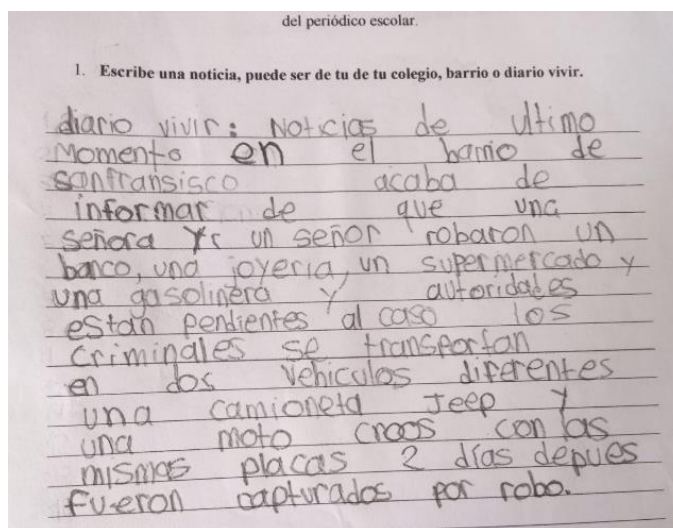 del periódico escolar.
1. Escribe una noticia, puede ser de tu de tu colegio, barrio o diario vivir.
diario vivir: Noticias de ultimo
Momento en el barrio de
sanfransisco acaba de
informar de que una
señora y un señor robaron un
banco, una joyeria, un supermercado y
una gasolinera y autoridades
estan pendientes al caso los
criminales se transportan
en dos vehiculos diferentes
una camioneta Jeep y
una moto croos con las
mismas placas 2 días depues
fueron capturados por robo.